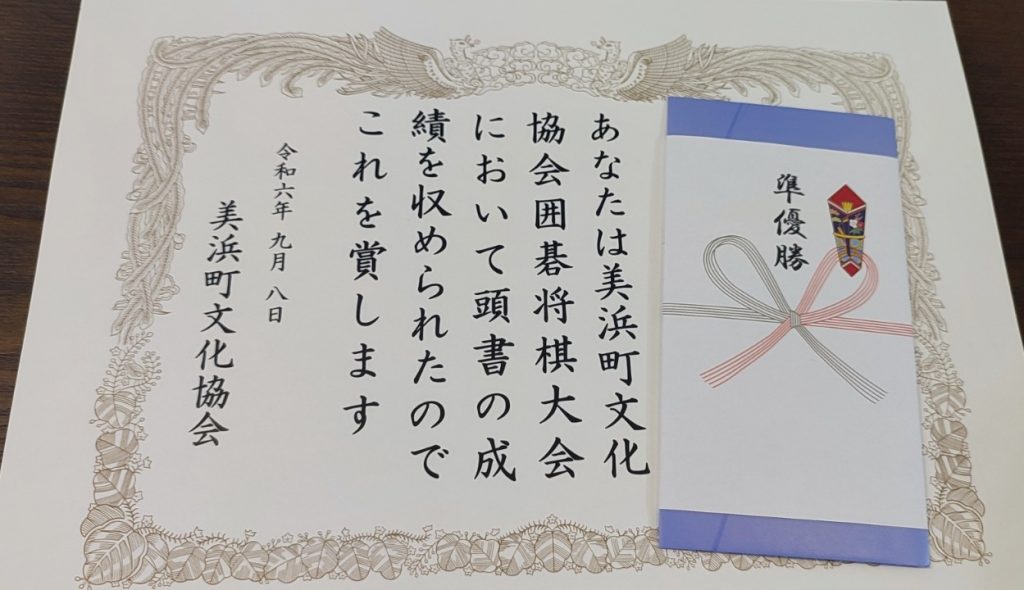 準優勝
あなたは美浜町文化
協会囲碁将棋大会
において頭書の成
績を収められたので
これを賞します
令和六年 九月 八日
美浜町文化協会